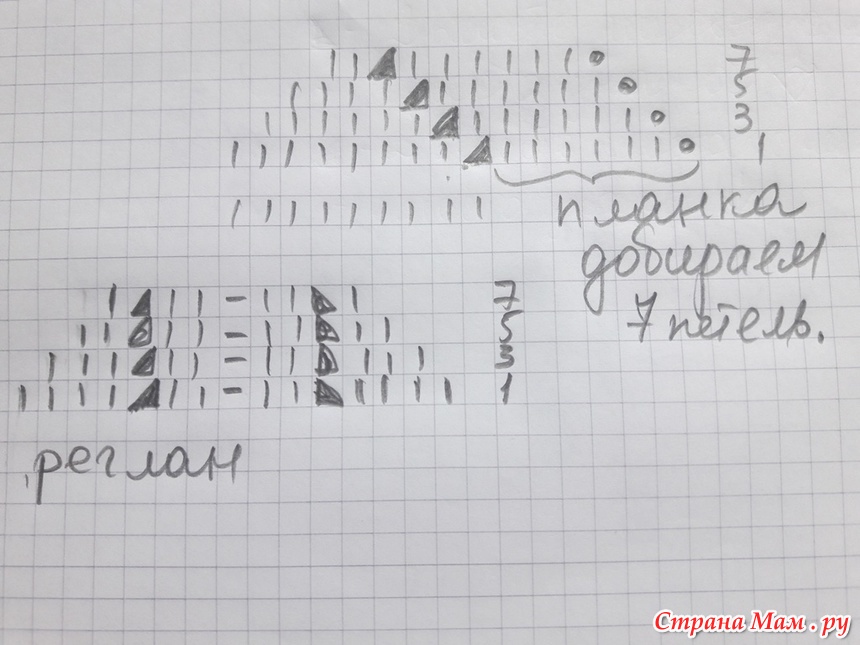 7
5
3
1
планка
добираем
7 петель.
7
5
3
1
реглан
Страна Мам.ру